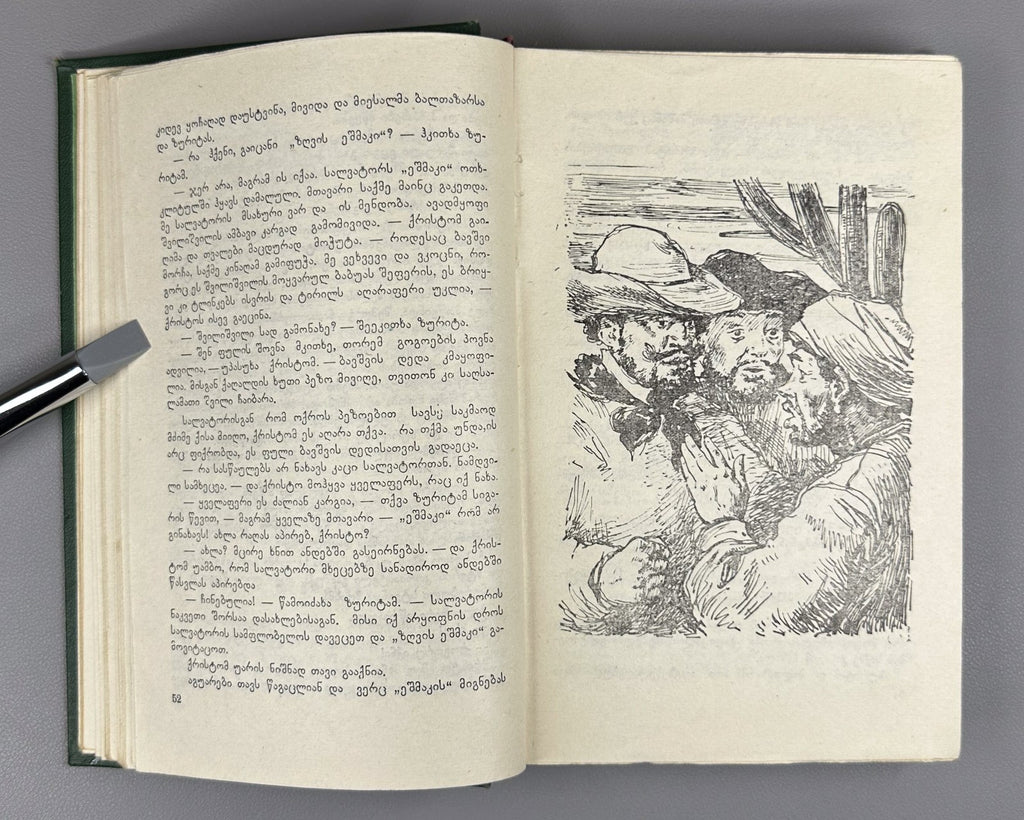 კიდევ ყოჩაღად დაუსტვინა, მივიდა და მიესალმა ბალთაზარსა
და ზურიტას.
— რა ჰქენი, გაიცანი „ზღვის ეშმაკი“? — ჰკითხა ზუ-
რიტამ.
— ჯერ არა, მაგრამ ის იქაა. სალვატორს „ეშმაკი“ ოთხ-
კლიტულში ჰყავს დამალული. მთავარი საქმე მაინც გაკეთდა.
მე სალვატორის მსახური ვარ და ის მენდობა. ავადმყოფი
შვილიშვილის ამბავი კარგად გამომივიდა. — ქრისტომ გაი-
ღიმა და თვალები მაცდურად მოჭუტა. — როდესაც ბავშვი
მორჩა, საქმე კინაღამ გამიფუჭა. მე ვეხვევი და ვკოცნი, რო-
გორც ეს შვილიშვილის მოყვარულ ბაბუას შეფერის, ეს ბრიყ-
ვი კი ტლინკებს ისვრის და ტირილს აღარაფერი უკლია, —
ქრისტოს ისევ გაეცინა.
— შვილიშვილი სად გამონახე? — შეეკითხა ზურიტა.
— შენ ფულის შოვნა მკითხე, თორემ გოგოების პოვნა
ადვილია, — უპასუხა ქრისტომ. — ბავშვის დედა კმაყოფი-
ლია. მისგან ქაღალდის ხუთი პეზო მივიღე, თვითონ კი საღსა-
ლამათი შვილი ჩაიბარა.
სალვატორისგან რომ ოქროს პეზოებით სავსე საკმაოდ
მძიმე ქისა მიიღო, ქრისტომ ეს აღარა თქვა. რა თქმა უნდა, ის
არც ფიქრობდა, ეს ფული ბავშვის დედისათვის გადაეცა.
— რა სასწაულებს არ ნახავს კაცი სალვატორთან. ნამდვი-
ლი სამხეცეა. — და ქრისტო მოჰყვა ყველაფერს, რაც იქ ნახა.
— ყველაფერი ეს ძალიან კარგია, — თქვა ზურიტამ სიგა-
რის წევით, — მაგრამ ყველაზე მთავარი — „ეშმაკი“ რომ არ
გინახავს! ახლა რაღას აპირებ, ქრისტო?
— ახლა? მცირე ხნით ანდებში გასეირნებას. — და ქრის-
ტომ უამბო, რომ სალვატორი მხეცებზე სანადიროდ ანდებში
წასვლას აპირებდა
— ჩინებულია! — წამოიძახა ზურიტამ. — სალვატორის
ნაკვეთი შორსაა დასახლებისაგან. მისი იქ არყოფნის დროს
სალვატორის სამფლობელოს დავეცეთ და „ზღვის ეშმაკი“ გა-
მოვიტაცოთ.
ქრისტომ უარის ნიშნად თავი გააქნია.
აგუარები თავს წაგაცლიან და ვერც „ეშმაკის“ მიგნებას
52